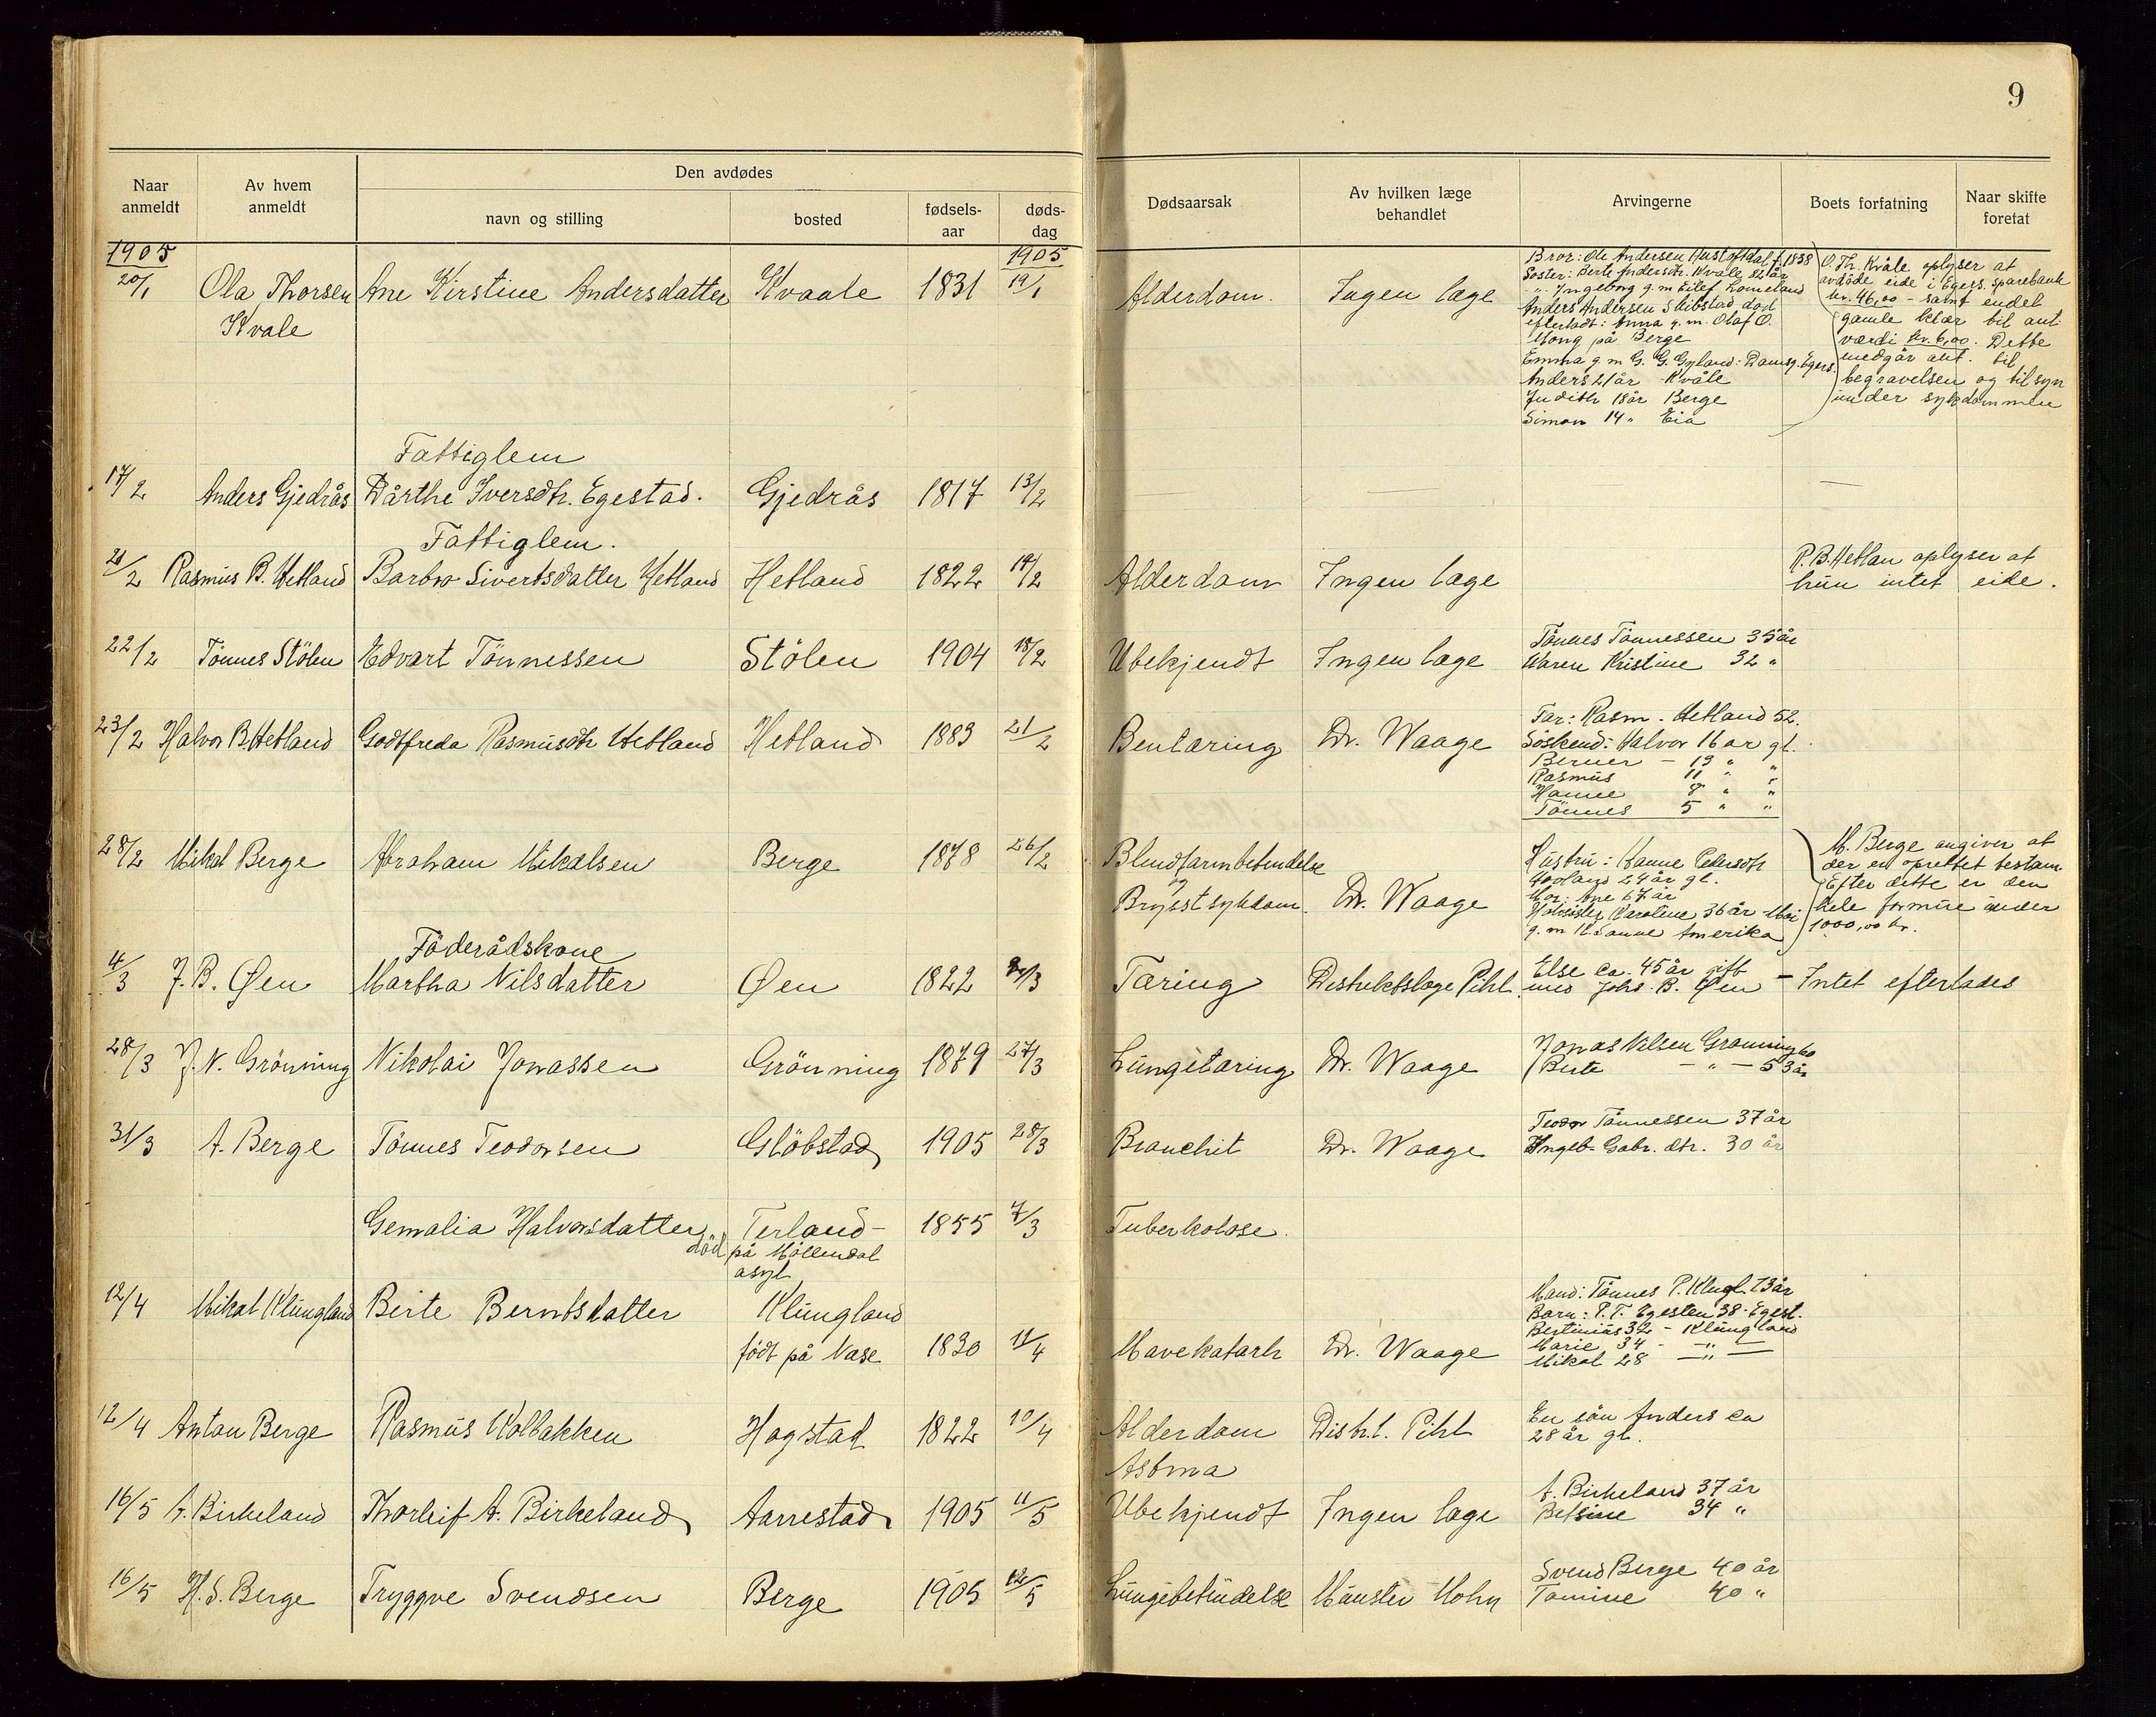 9
Naar anmeldt
Av hvem anmeldt
Den avdødes
navn og stilling
bosted
fødselsaar
dødsdag
Dødsaarsak
Av hvilken læge behandlet
Arvingerne
Boets forfatning
Naar skifte foretat
1905
1905
20/1 Ola Thorsen Kvale
Ane Kirstine Andersdatter Kvaale 1831 19/1
Alderdom. Ingen læge
Bror: Ole Andersen f. 1838
Søster: Berte Andersdtr. Kvåle 82 år
" Ingeborg g. m Eilef Lomeland
Anders Andersen Skibstad død
efterladt: Anna g. m. Olaf O.
Mong på Berge
Emma g m G. G. Gyland: Damsg. Egers.
Anders 21 år Kvåle
Judith 18 år Berge
Simon 14 " Eia
O. Th. Kvåle oplyser at
avdøde eide i Egers. Sparebank
kr. 46,00 - samt endel
gamle klær til ant.
værdi kr. 6,00. Dette
medgår ant. til
begravelsen og tilsyn
under sykdommen
Fattiglem
17/2 Anders Gjedrås Dårthe Iversdtr. Egestad. Gjedrås 1817 13/2
Fattiglem.
21/2 Rasmus B. Hetland Barbro Sivertsdatter Hetland Hetland 1822 19/2
Alderdom Ingen læge
R. B. Hetlan oplyser at
hun intet eide.
22/2 Tönnes Stölen Edvart Tönnessen Stölen 1904 18/2
Ubekjendt Ingen læge
Tönnes Tönnessen 35 år
Karen Kristine 32 "
23/2 Halvor B Hetland Godtfreda Rasmusdtr Hetland Hetland 1883 21/2
Bentæring Dr. Waage
Far: Rasm. Hetland 52.
Söskend: Halvor 16 år gl.
Berner - 13 " "
Rasmus 11 " "
Hanne 8 " "
Tönnes 5 " "
28/2 Mikal Berge Abraham Mikalsen Berge 1878 26/2
Blindtarmbetændelse
og
Brystsykdom. Dr. Waage
Hustru: Hanne Pedersdtr
24 år gl.
Mor: Ane 67 år
Halvsöster Karoline 36 år
g. m Amerika
M. Berge angiver at
der er oprettet testam.
Efter dette er den
hele formue under
1000,00 kr.
Föderådskone
4/3 J. B. Øen Martha Nilsdatter Øen 1822 /3
Tæring Distriktslæge Pihl
Else ca. 45 år gift
med Johs. B. Øen - Intet efterlades
28/3 J. N. Grönning Nikolai Jonassen Grönning 1879 27/3
Lungetæring Dr. Waage
Jonas Nilsen Grönning 60
Berte - " - 53 år
31/3 A. Berge Tönnes Teodorsen Glöbstad 1905 28/3
Bronchit Dr. Waage
Teodor Tönnessen 37 år
Ingeb. Gabr. dtr. 30 år
Gemalia Halvorsdatter Terland - 1855 7/3
död på Möllendal
asyl
Tuberkolose.
12/4 Mikal Klungland Berte Berntsdatter Klungland
född på Nase 1830 11/4
Mavekatarh Dr. Waage
Mand: Tönnes P. Klugl. 73 år
Barn: P. T. Egesten 38 - Egest.
Bertinius 32 - Klungland
Marie 34 - " -
Mikal 28 - " -
12/4 Anton Berge Rasmus Kolbakken Hogstad 1822 10/4
Alderdom Distr.l. Pihl
En sön Anders ca
28 år gl.
Astma
16/5 A. Birkeland Thorleif A. Birkeland Aarrestad 1905 11/5
Ubekjendt Ingen læge
A. Birkeland 37 år
Betsine 34 "
16/5 H. S. Berge Tryggve Svendsen Berge 1905 12/5
Lungebetendelse Münster Mohn
Svend Berge 40 år
Tomine 40 "